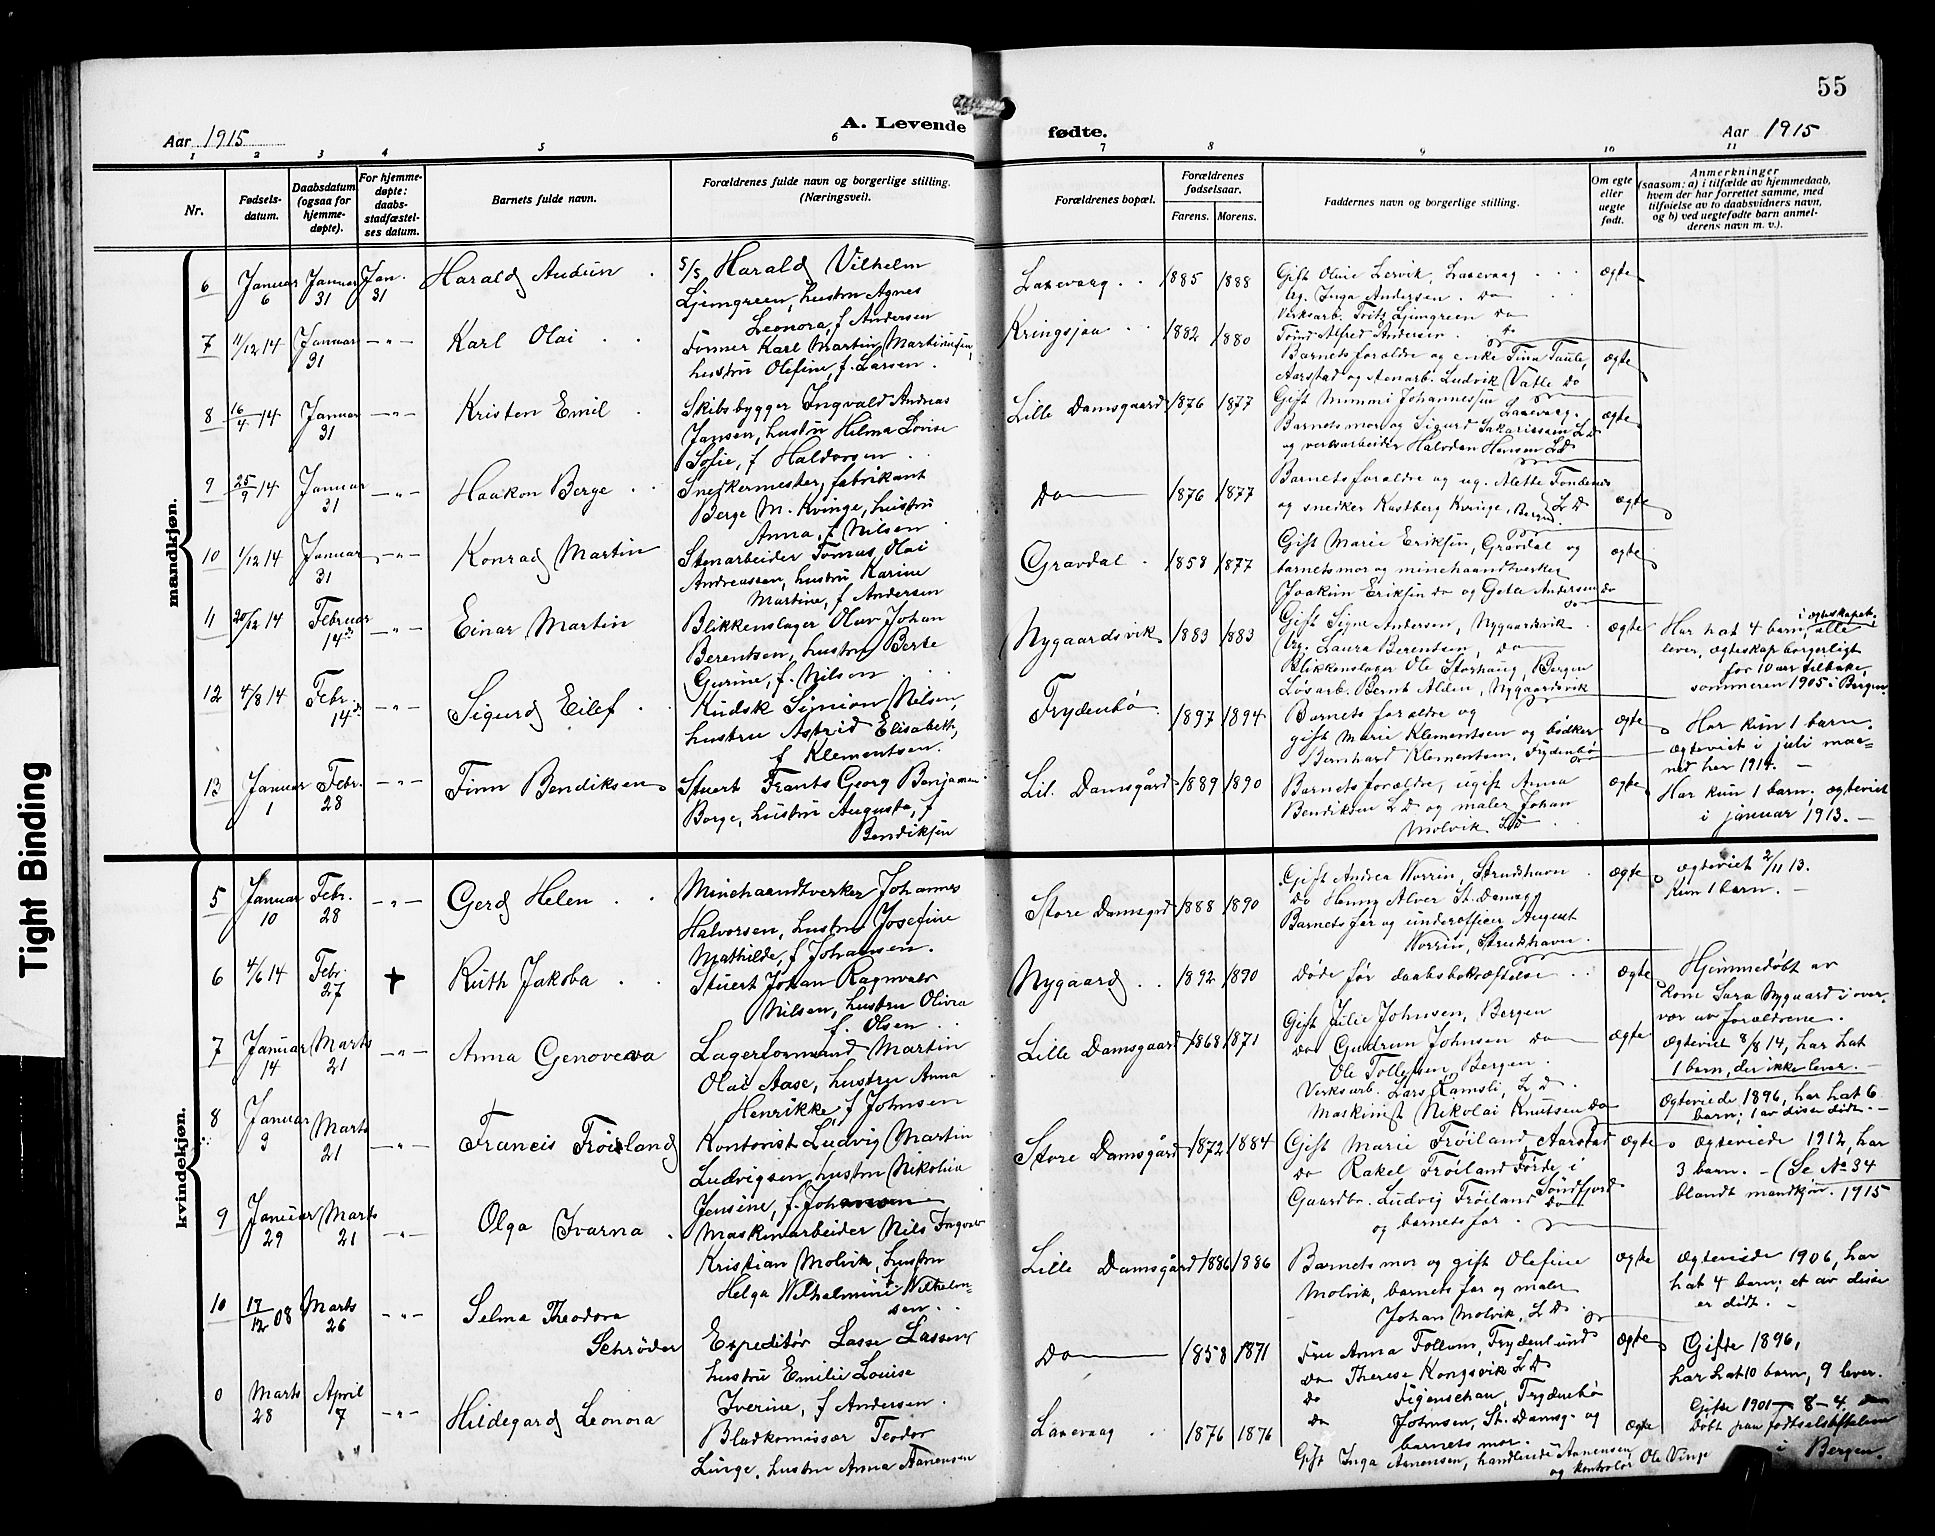 55
A. Levende fødte.
Aar 1915
Aar 1915
1 2 3 4 5 6 7 8 9 10 11
Nr.
Fødselsdatum.
Daabsdatum (ogsaa for hjemmedøpte).
For hjemmedøpte: daabsstadfæstelses datum.
Barnets fulde navn.
Forældrenes fulde navn og borgerlige stilling. (Næringsvei).
Forældrenes bopæl.
Forældrenes fødselsaar.
Farens. Morens.
Faddernes navn og borgerlige stilling.
Om egte eller uegte født.
Anmerkninger (saasom: a) i tilfælde av hjemmedaab, hvem der har forrettet samme, med tilføielse av to daabsvidners navn, og b) ved uegtefødte barn anmelderens navn m. v.).
mandkjøn.
6 Januar 6 Januar 31 Jan. 31 Harald Audun
S/S Harald Vilhelm
Ljungreen, hustru Agnes
Leonora, f Andersen
Laxevaag 1885 1888
Gift Oline Lervik, Laxevaag
Ug. Inga Andersen do
Verksarb. Fritz Ljungreen do
Tømd Alfred Andersen do
ægte
7 11/12 14 Januar 31 -"- Karl Olai
Tømmer Karl Martin Martinussen,
hustru Olefine, f. Larsen
Kringsjaa 1882 1880
Barnets forældre og enke Tina Taule,
Aarstad og Stenarb. Ludvik Vatle do
ægte
8 16/4 14 Januar 31 -"- Kristen Emil
Skibsbygger Ingvald Andreas
Jansen, hustru Helma Lovise
Sofie, f Haldorsen
Lille Damsgaard 1876 1877
Gift Mimmi Johannessen Laxevaag.
Barnets mor og Sigurd Sakariassen L D
og verksarbeider Halvdan Hansen L D
ægte
9 25/9 14 Januar 31 -"- Haakon Berge
Snedkermester, fabrikant
Berge M. Kvinge, hustru
Anna, f Nilsen
Do 1876 1877
Barnets forældre og ug. Alette Fondenes
og snedker Kastberg Kvinge, Bergen L D
ægte
10 1/12 14 Januar 31 -"- Konrad Martin
Stenarbeider Tomas Olai
Andreassen, hustru Karine
Martine, f Andersen
Gravdal 1858 1877
Gift Marie Eriksen, Gravdal og
barnets mor og minehaandtverker
Joakim Eriksen do og Gota Andersen do
ægte
11 20/12 14 Februar 14de -"- Einar Martin
Blikkenslager Olav Johan
Berentsen, hustru Berte
Gurine, f. Nilsen
Nygaardsvik 1883 1883
Gift Signe Andersen, Nygaardsvik
Ug. Laura Berentsen, do
Blikkenslager Ole Storhaug, Bergen
Løsarb. Bernt Alden, Nygaardsvik
ægte
Har hat 4 barn i ægteskapet, alle
lever, ægteskap borgerligt
for 10 aar tilbake
sommeren 1905 i Bergen
12 4/8 14 Febr. 14de -"- Sigurd Eilef
Kudsk Simion Nilsen,
hustru Astrid Elisabeth,
f Klementsen.
Frydenbö 1897 1894
Barnets forældre og
gift Marie Klementsen og bødker
Bernhard Klementsen, Frydenbö
ægte
Har kun 1 barn.
ægteviet i juli maaned her 1914.
13 Januar 1 Febr. 28 -"- Finn Bendiksen
Stuert Frants Georg Benjamin
Borge, hustru Augusta, f
Bendiksen
Lil. Damsgård 1889 1890
Barnets forældre, ugift Anna
Bendiksen L D og maler Johan
Molvik L D
ægte
Har kun 1 barn; ægteviet
i januar 1913.
kvindekjøn.
5 Januar 10 Febr. 28 -"- Gerd Helen
Minehaandtverker Johannes
Halvorsen, hustru Josefine
Mathilde, f Johansen.
Store Damsgrd 1888 1890
Gift Andrea Worrin, Strudshavn
Do Henny Alver St. Damsg
Barnets far og underofficer August
Worrin, Strudshavn.
ægte
Ægteviet 2/11 13.
Kun 1 barn.
6 4/6 14 Febr. 27 † Ruth Jakoba
Stuert Johan Ragnvald
Nilsen, hustru Olivia
f. Olsen
Nygaard 1892 1890
Døde før daabsbekræftelse
ægte
Hjemmedøbt av
kone Sara Nygaard i overvær av forældrene.
Ægteviet 8/8 14, har hat
1 barn, der ikke lever.
7 Januar 14 Marts 21 -"- Anna Genoveva
Lagerformand Martin
Olai Aase, hustru Anna
Henrikke, f Johnsen
Lille Damsgaard 1868 1871
Gift Julie Johnsen, Bergen
Do Gudrun Johnsen do
Ole Tollefsen, Bergen.
Verksarb. Lars Ramsli, L D.
Maskinist Nikolai Knutsen Do
ægte
Ægteviede 1896, har hat 6
barn; 1 av disse dødt.
8 Januar 3 Marts 21 -"- Francis Frøiland
Kontorist Ludvig Martin
Ludvigsen, hustru Nikolina
Jensine, f. Johansen
Store Damsgård 1872 1884
Gift Marie Frøiland, Aarstad
Do Rakel Frøiland Førde i Søndfjord
Gaardbr. Ludvig Frøiland Do
og barnets far.
ægte
Ægteviede 1912, har
3 barn. - (Se No 34
blandt mandkjøn. 1915
9 Januar 29 Marts 21 -"- Olga Ivarna
Maskinarbeider Nils Ingvar
Kristian Molvik, hustru
Helga Wilhelmine f. Wilhelmsen.
Lille Damsgård 1886 1886
Barnets mor og gift Olefine
Molvik, barnets far og maler
Johan Molvik, L D.
ægte
Ægteviede 1906, har
hat 4 barn; et av disse
er dødt.
10 17/12 08 Marts 26 -"- Selma Theodora
Schrøder
Expeditör Lasse Lassen
hustru Emilie Louise
Iverine, f Andersen.
Do 1858 1871
Fru Anna Follum, Frydenlund
Do Therese Kongsvik L D
do Figenschau, Frydenbö
do Johnsen, St. Damsg. og
barnets mor.
ægte
Gifte 1896,
har hat 10 barn, 9 lever.
0 Marts 28 April 7 -"- Hildegard Leonora
Bladkomissær Teodor
Linge, hustru Anna Aanensen
Laxevaag 1876 1876
Gift Inga Aanensen, handlende Aanensen
og kontrolør Ole Vinje
ægte
Gifte 1901 - 8 - 4.
Døbt paa fødselsstiftelsen
i Bergen.
Tight Binding